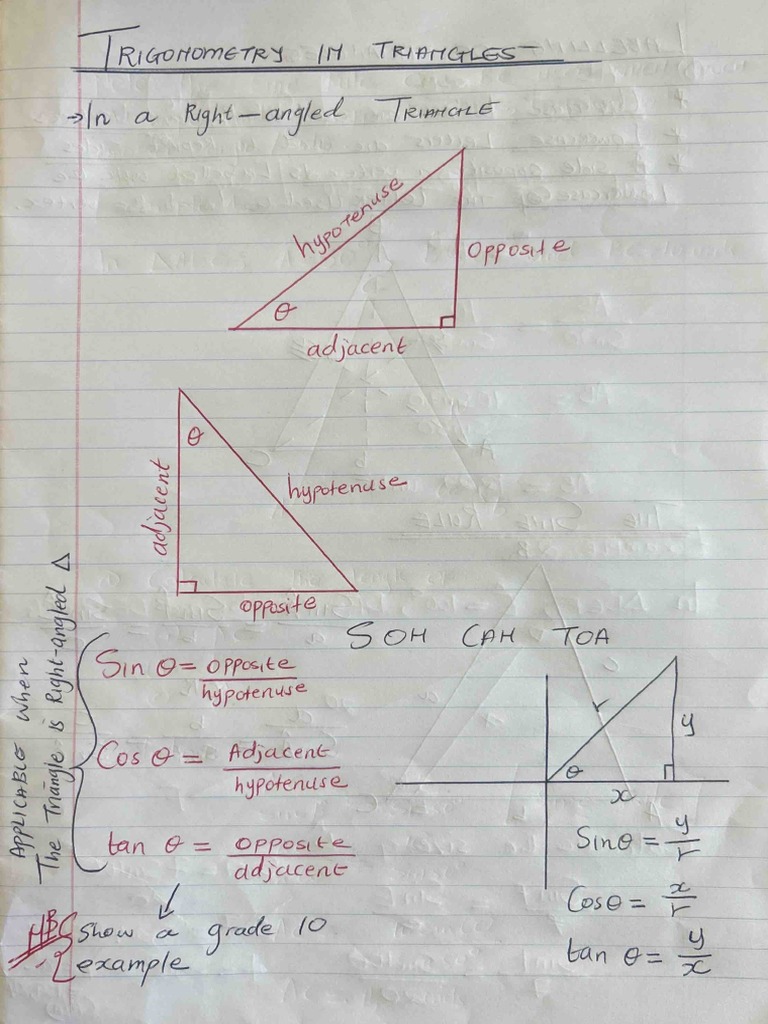 TRIGONOMETRY IN TRIANGLES
→In a Right-angled TRIANGLE
hypotenuse
opposite
θ
adjacent
θ
adjacent
hypotenuse
opposite
SOH CAH TOA
APPLICABLE When
The Triangle is Right-angled Δ
Sin θ = opposite
hypotenuse
Cos θ = Adjacent
hypotenuse
tan θ = opposite
adjacent
r
y
θ
x
Sinθ = y/r
Cosθ = x/r
tan θ = y/x
Show a grade 10
example